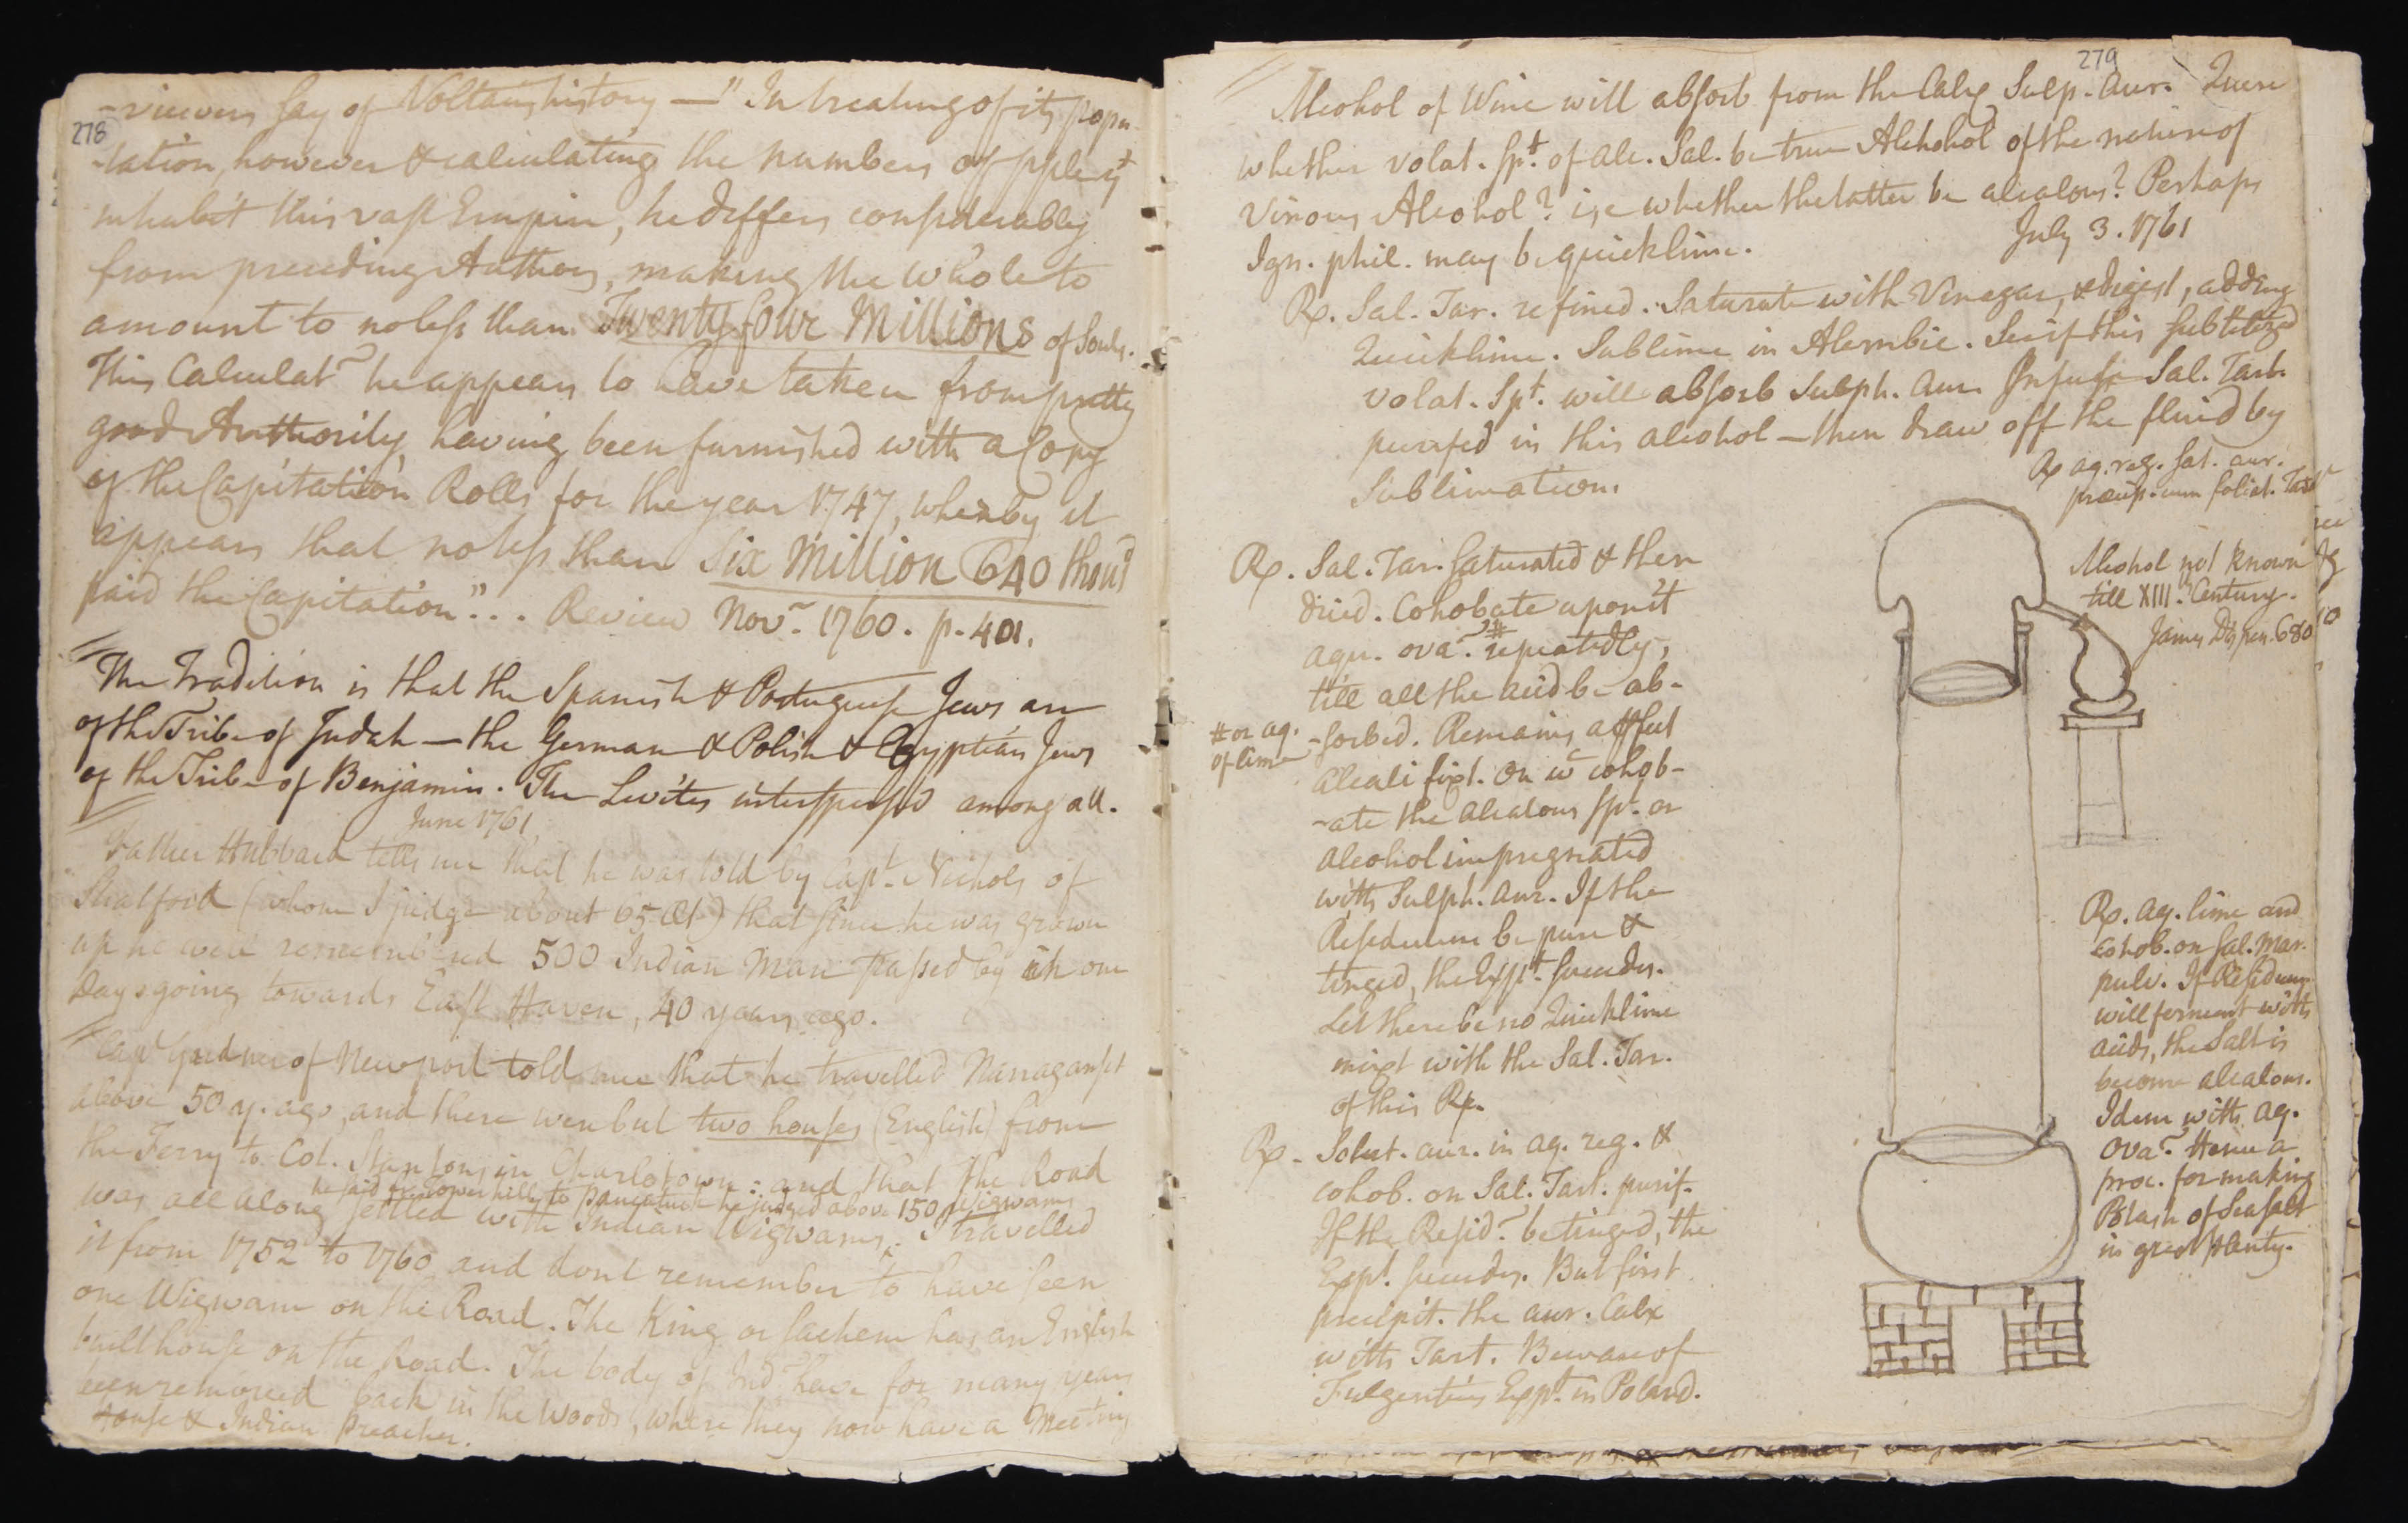 278
-viewers say of Voltairs history — "In treating of its popu-
-lation, however & calculating the numbers of pple yt
inhabit this vast Empire, he differs considerably
from preceding Authors, making the whole to
amount to no less than Twenty four Millions of Souls.
This Calculatn he appears to have taken from pretty
good Authority, having been furnished with a Copy
of the Capitation Rolls for the year 1747, whereby it
appears that no less than Six Million 640 thousd
paid the Capitation"... Review Novr. 1760. p. 401.
The Tradition is that the Spanish & Portuguese Jews are
of the Tribe of Judah — the German & Polish & Egyptian Jews
of the Tribe of Benjamin. The Levites interspersed among all.
June 1761
Father Hubbard tells me that he was told by Capt. Nichols of
Stratford (whom I judge about 65 Æt.) that since he was grown
up he well remembered 500 Indian Men passed by in one
Day going towards East Haven, 40 years ago.
Capt Gardner of Newport told me that he travelled Narraganset
above 50 y. ago, and there were but two houses (English) from
the Ferry to Col. Stantons in Charlstown: and that the Road
he said fr Tower hill to Pawcatuck he judged above 150 Wigwams
was all along settled with Indian Wigwams. I travelled
it from 1752 to 1760 and dont remember to have seen
one Wigwam on the Road. The King or Sachem has an English
built house on the Road. The body of Inds have for many years
been removed back in the Woods, where they now have a Meeting
House & Indian Preacher.
279
Alcohol of Wine will absorb from the Calx Sulp. Aur. Quere
whether volat. Spt. of alc. Sal. be true Alchohol of the nature of
Vinous Alcohol? i,e whether the latter be alcalous? Perhaps
Ign. phil. may be quicklime. July 3. 1761
Rx. Sal. Tar. refined. Saturate with Vinegar, & digest, adding
Quicklime. Sublime in Alembic. See if this subtilized
volat. Spt. will absorb Sulph. Aur. Infuse Sal. Tart.
purifed in this alcohol — then draw off the fluid by
Sublimation.
Rx aq. reg. sat. aur.
præcip. cum foliat. Tart
Alcohol not known
till XIII. Century.
James Dispen. 680
Rx. Sal. Tar. Saturated & then
dried. Cohobate upon't
aqu. ova. # repeatedly,
till all the acid be ab-
# or aq.
of lime
-sorbed. Remains a pfect
Alcali fixt. On wc cohob-
-ate the alcalous Spt. or
alcohol impregnated
with Sulph. aur. If the
Residuum be pure &
tinged, the Expt. succeeds.
Let there be no Quicklime
mixt with the Sal. Tar.
of this Rx.
Rx. Solut. aur. in aq. reg. &
cohob. on Sal. Tart. purif.
If the Resid. be tinged, the
Expt. succeeds. But first
precipit. the aur. Calx
with Tart. Beware of
Fulgentius Expt. in Poland.
Rx. aq. lime and
cohob. on Sal. Mar.
pulv. If Residuum
will ferment with
acids, the Salt is
become alcalous.
Idem with aq.
Ova. Hence a
proc. for making
Potash of Seasalt
in great plenty.